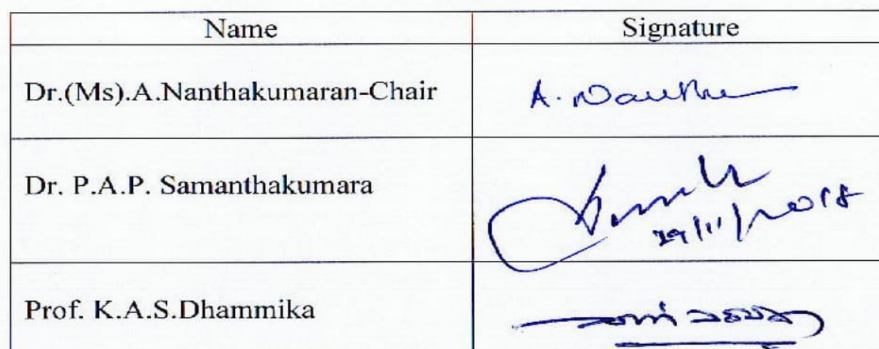 Name Signature
Dr.(Ms).A.Nanthakumaran-Chair A.
Dr. P.A.P. Samanthakumara
29/11/2018
Prof. K.A.S.Dhammika